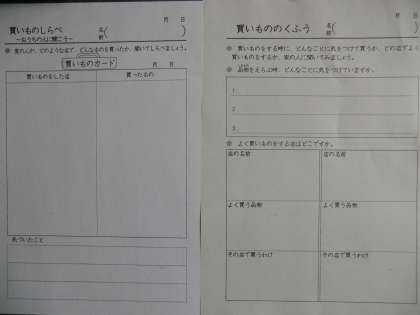 月 日
買いものしらべ
～おうちの人に聞こう～
名前( )
◎ 家の人が、どのような店で、どんなものを買ったか、聞いてみましょう。
買いものカード
月 日
買いものをした店 買ったもの
気づいたこと
月 日
買いもののくふう
名前( )
◎ 買いものをする時に、どんなことに気をつけて買うか、どの店でよく
買いものをするか、家の人に聞いてみましょう。
◎ 品物をえらぶ時、どんなことに気をつけていますか。
1.
2.
3.
◎ よく買いものをする店はどこですか。
店の名前 店の名前
よく買う品物 よく買う品物
その店で買うわけ その店で買うわけ